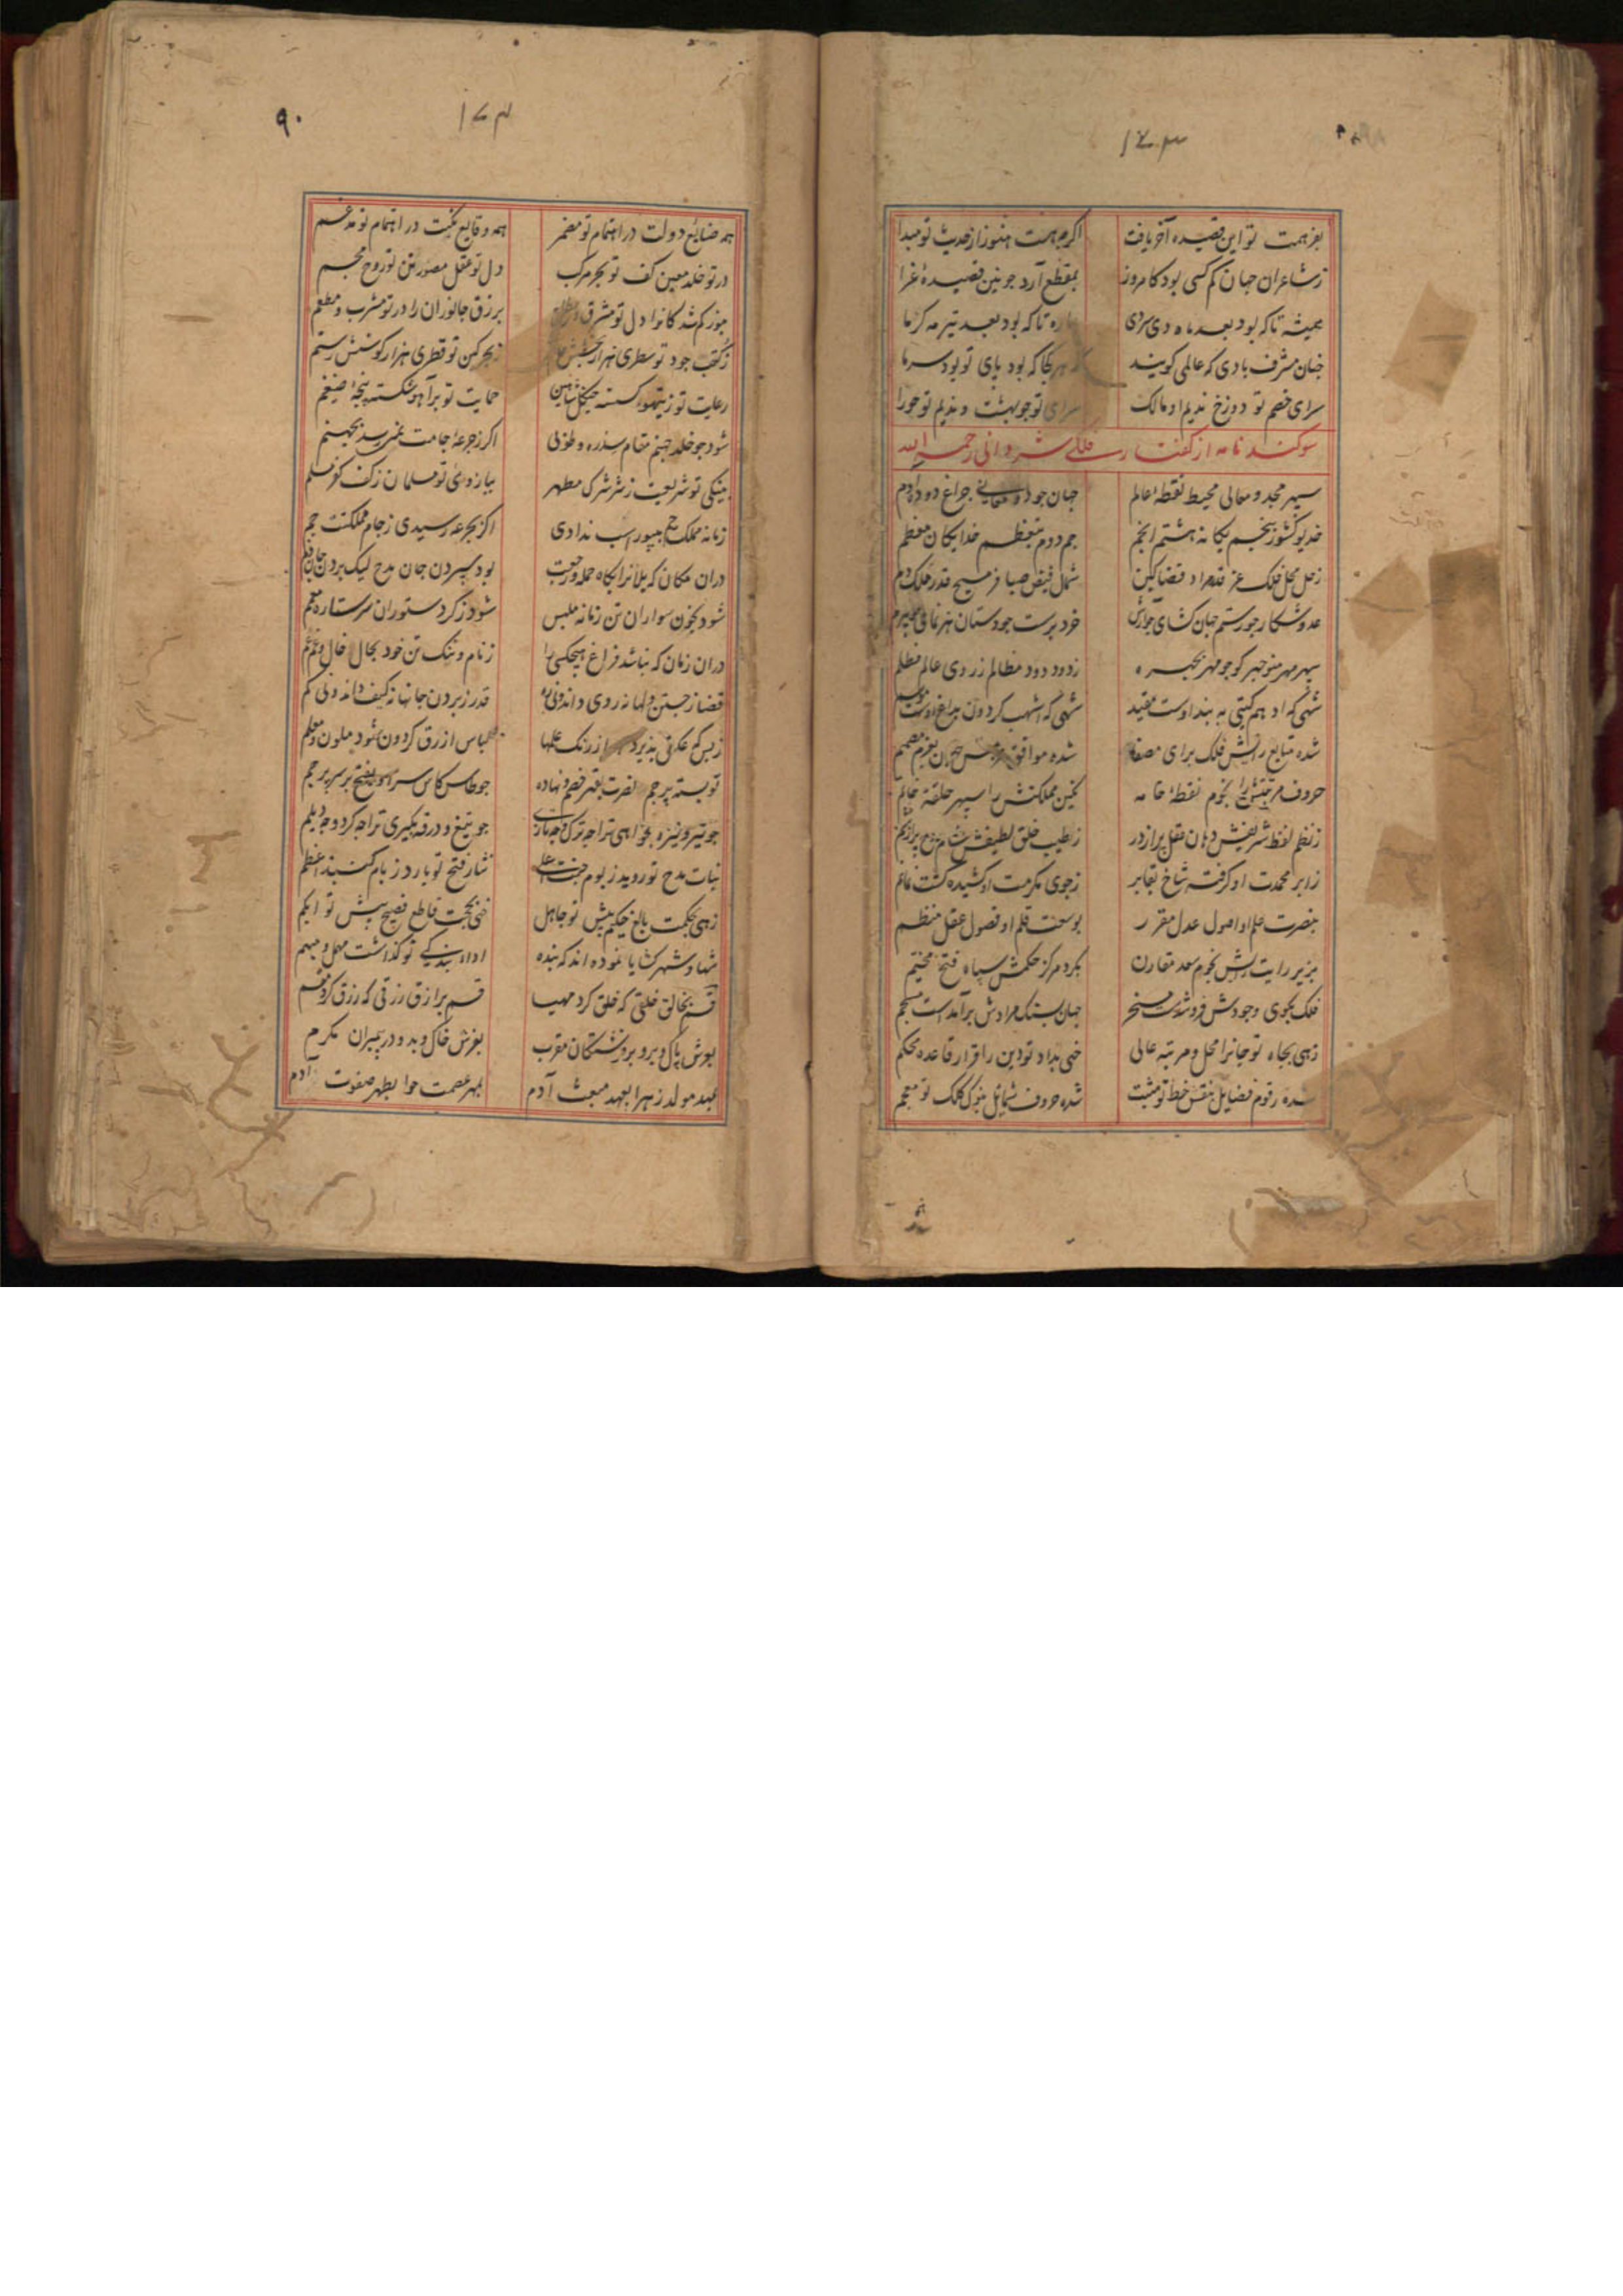 ۱۷۳
بفر همت تو این قصیده آخر یافت اکرچه هست هنوز از حدیث تو مبدا
ز شاعران جهان کم کسی بود کامروز بمقطع آرد جونین قصیدهٔ غرا
همیشه تا که بود بعد ماه دی سردی تا که بود بعد تیر مه کرما
جنان مشرف بادی که عالمی کویند هر کجا که بود پای تو بود سر ما
سرای خصم تو دوزخ ندیم او مالک سرای تو جو بهشت و ندیم تو حورا
سوکند نامه از کفتار فلکی شروانی رحمه الله
سپهر مجد و معالی محیط نقطهٔ عالم جهان جود و معانی جراغ دودهٔ آدم
خدیو کشور پنجم یکانهٔ هشتم انجم جم دوم بتعظم خدایکان معظم
زحل محل فلک عز قدر اد قضا کین شمل فیض صبا فر مسیح قدر ملک دم
عدو شکار جو رستم جهان کشای جو آرش خرد پرست جو دستان هنرنمای
سپهر مهر منوجهر کو جو مهر بجهره زدود دود مظالم ز روی عالم مظلم
شهی که ادهم کیتی به بند اوست مقید شهی که اشهب کردون بداغ اوست
شده متابع رایش فلک برای مصفا شده موافق جهان بعزم مصمم
حروف مرتبتش را نجوم نقطهٔ خامه نکین مملکتش را سپهر حلقهٔ خاتم
ز نظم لفظ شریفش دهان عقل پر از در ز طیب خلق لطیفش مشام
ز ابر محمدت او کرفته شاخ تفاخر ز جوی مکرمت او کشیده کشت
بنصرت علم او اصول عدل مقرر بوسعت قلم او فصول عقل منظم
بزیر رایت رایش نجوم سعد مقارن بکرد مرکز حکمش سپاه فتح مخیم
فلک بجوی وجودش فروشدست مسخر جهان بسنک مرادش برآمدست
زهی بجاه تو جانرا محل و مرتبه عالی خهی بداد تو دین را قرار قاعده محکم
شده رقوم فضایل بنقش خط تو مثبت شده حروف شمایل بنوک کلک تو معجم
۱۷۴
۹۰
همه صنایع دولت در اهتمام تو مضمر همه وقایع نکبت در انتقام تو مدغم
در تو خلد معین کف تو بحر مرکب دل تو عقل مصور تن تو روح مجسم
هنوز کم شدکانرا دل تو مشرق برزق جانوران را در تو مشرب و مطعم
ز کتب جود تو سطری هزار بخشش ز بحر کین تو قطری هزار کوشش رستم
رعایت تو ز تیهو کسسته جنکل شاهین حمایت تو بر آهو شکسته پنجهٔ ضیغم
شود جو خلد جهنم مقام سدره و طوبی اکر ز جرعهٔ جامت نمی رسد بجهنم
بنیکی تو شریعت ز شر شرک مطهر ببازوی تو مسلمان ز کف کفر مسلم
زمانه مملکت جم به بیوراسب ندادی اکر بجرعه رسیدی ز جام مملکتت جم
دران مکان که یلانرا بکاه حمله و رجعت بود سپردن جان مدح لیک بردن
شود بخون سواران تن زمانه ملبس شود ز کرد ستوران سر ستاره معمم
دران زمان که نباشد فراغ هیجکسی را ز نام و ننک تن خود بحال خال و غم عم
قضا ز جستن دلها نه روی داند و نی قدر ز بردن جانها نه کیف داند و نی کم
ز بس که عکس پذیرد از رنک علمها لباس ازرق کردون شود ملون و معلم
تو بسته پرجم نصرت بقهر خصم و نهاده جو طاس کاس سر او بفتح بر سر پرجم
جو تیر و نیزه بخواهی ترا جه ترک و جه تازی جو تیغ و درقه بکیری ترا جه کرد و جه دیلم
نبات مدح تو روید ز بوم نثار فتح تو بارد ز بام کنبد اعظم
زهی بحکمت بالغ حکیم پیش تو جاهل خهی بحجت قاطع فصیح پیش تو ابکم
شها و شهر کشایا نموده اند که بنده اداء بندکی تو کذاشت مهمل و مبهم
قسم بخالق خلقی که خلق کرد مهیا قسم برازق رزقی که رزق کرد مقسم
بعرش پاک و برو بر فرشتکان مقرب بفرش خاک و بدو در پیمبران مکرم
بعهد مولد زهرا بعهد مبعث آدم بمهر عصمت حوا بطهر صفوت آدم